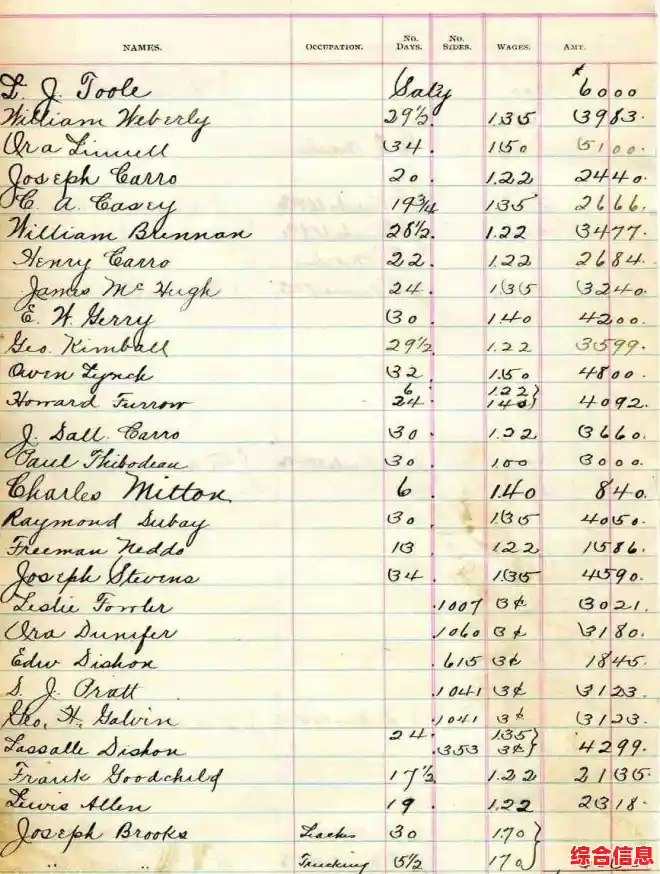 NAMES. OCCUPATION. NO. DAYS. NO. SIDES. WAGES. AMT.
T. J. Toole Saly $6000
William Weberly 29½ 1.35 3983.
Ora Linnell 34. 1.50 5100.
Joseph Carro 20. 1.22 2440.
C. A. Casey 19¾ 1.35 2666.
William Brennan 28½. 1.22 3477.
Henry Carro 22. 1.22 2684.
James McHugh 24. 1.35 3240.
E. W. Gerry 30. 1.40 4200.
Geo. Kimball 29½ 1.22 3599.
Owen Lynch 32. 1.50 4800.
6 1.22}
Howard Furrow 24 1.40} 4092.
J. Dall. Carro 30. 1.22 3660.
Paul Thibodeau 30. 1.00 3000.
Charles Mitton. 6. 1.40 840.
Raymond Dubay 30. 1.35 4050.
Freeman Neddo 13 1.22 1586.
Joseph Stevens 34. 1.35 4590.
Leslie Fowler .1007 3¢ 3021.
Ora Dunifer .1060 3¢ 3180.
Edw Dishon .615 3¢ 1845.
S. J. Pratt .1041 3¢ 3123.
Geo. H. Galvin .1041 3¢ 3123.
24. 1.35}
Lassalle Dishon .353 3¢} 4299.
Frank Goodchild 17½ 1.22 2135.
Lewis Allen 19. 1.22 2318.
Joseph Brooks 30 1.70}
" " Trucking 5½ 1.70}
综合信息